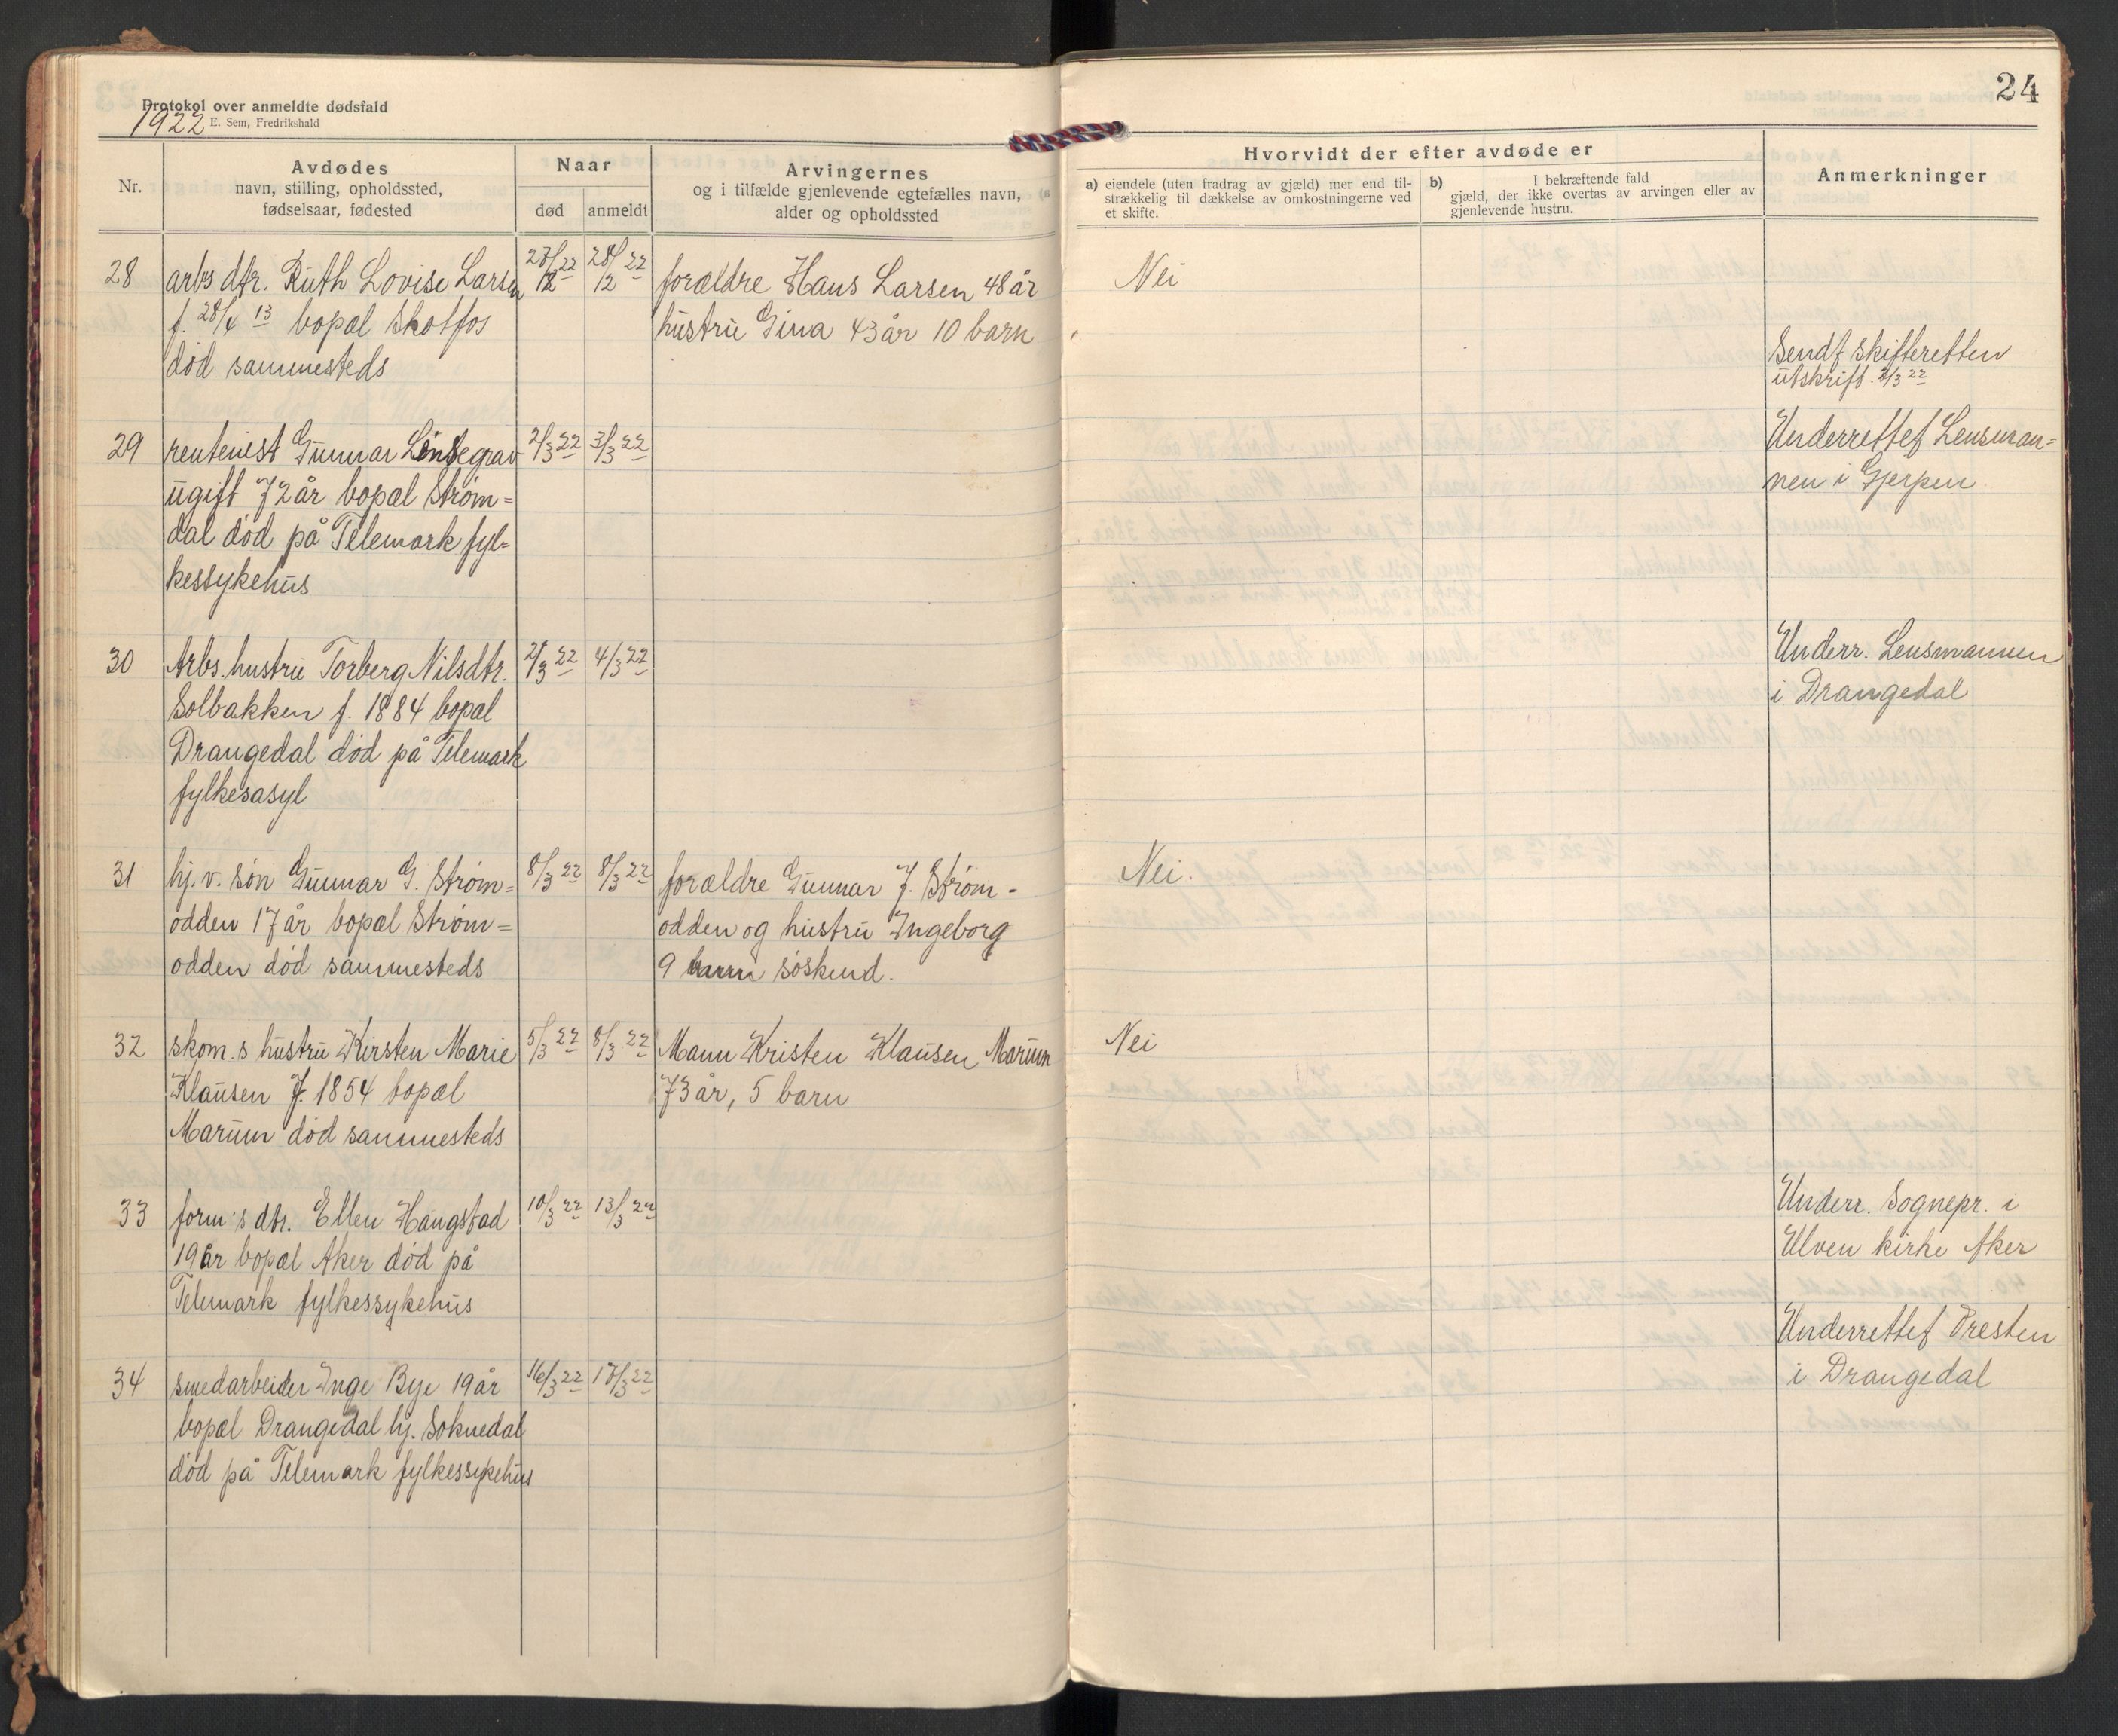 Protokol over anmeldte dødsfald
1922 E. Sem, Fredrikshald
24
Nr.
Avdødes
navn, stilling, opholdssted,
fødselsaar, fødested
Naar
død anmeldt
Arvingernes
og i tilfælde gjenlevende egtefælles navn,
alder og opholdssted
Hvorvidt der efter avdøde er
a) eiendele (uten fradrag av gjæld) mer end til-
strækkelig til dækkelse av omkostningerne ved
et skifte.
b) I bekræftende fald
gjæld, der ikke overtas av arvingen eller av
gjenlevende hustru.
Anmerkninger
28 arbs dtr. Ruth Lovise Larsen 28/12 22 forældre Hans Larsen 48 år Nei
f. 28/4 13 bopæl Skotfos hustru Gina 43 år 10 barn
død sammesteds
Sendt skifteretten
utskrift 2/3 22
29 rentenist Gunnar 2/3 22 3/3 22 Underrettet Lensman=
ugift 72 år bopæl Strøm= nen i Gjerpen
dal død på Telemark fyl=
kessykehus
30 Arbs. hustru Torberg Nilsdtr. 2/3 22 4/3 22 Underr. Lensmannen
Solbakken f. 1884 bopæl i Drangedal
Drangedal død på Telemark
fylkesasyl
31 hj. v. søn Gunnar G. Strøm= 8/3 22 8/3 22 forældre Gunnar J. Strøm- Nei.
odden 17 år bopæl Strøm= odden og hustru Ingeborg
odden død sammesteds 9 barn søskend.
32 skom.s hustru Kirsten Marie 5/3 22 8/3 22 Mann Kristen Klausen Marum Nei
Klausen f. 1854 bopæl 73 år, 5 barn
Marum død sammesteds
33 form's dtr. Ellen Haugstad 10/3 22 13/3 22 Underr. Sognepr. i
19 år bopæl Aker død på Ulven kirke Aker
Telemark fylkessykehus
34 smedarbeider Inge Bye 19 år 16/3 22 17/3 22 Underrettet Presten
bopæl Drangedal hj. Soknedal i Drangedal
død på Telemark fylkessykehus